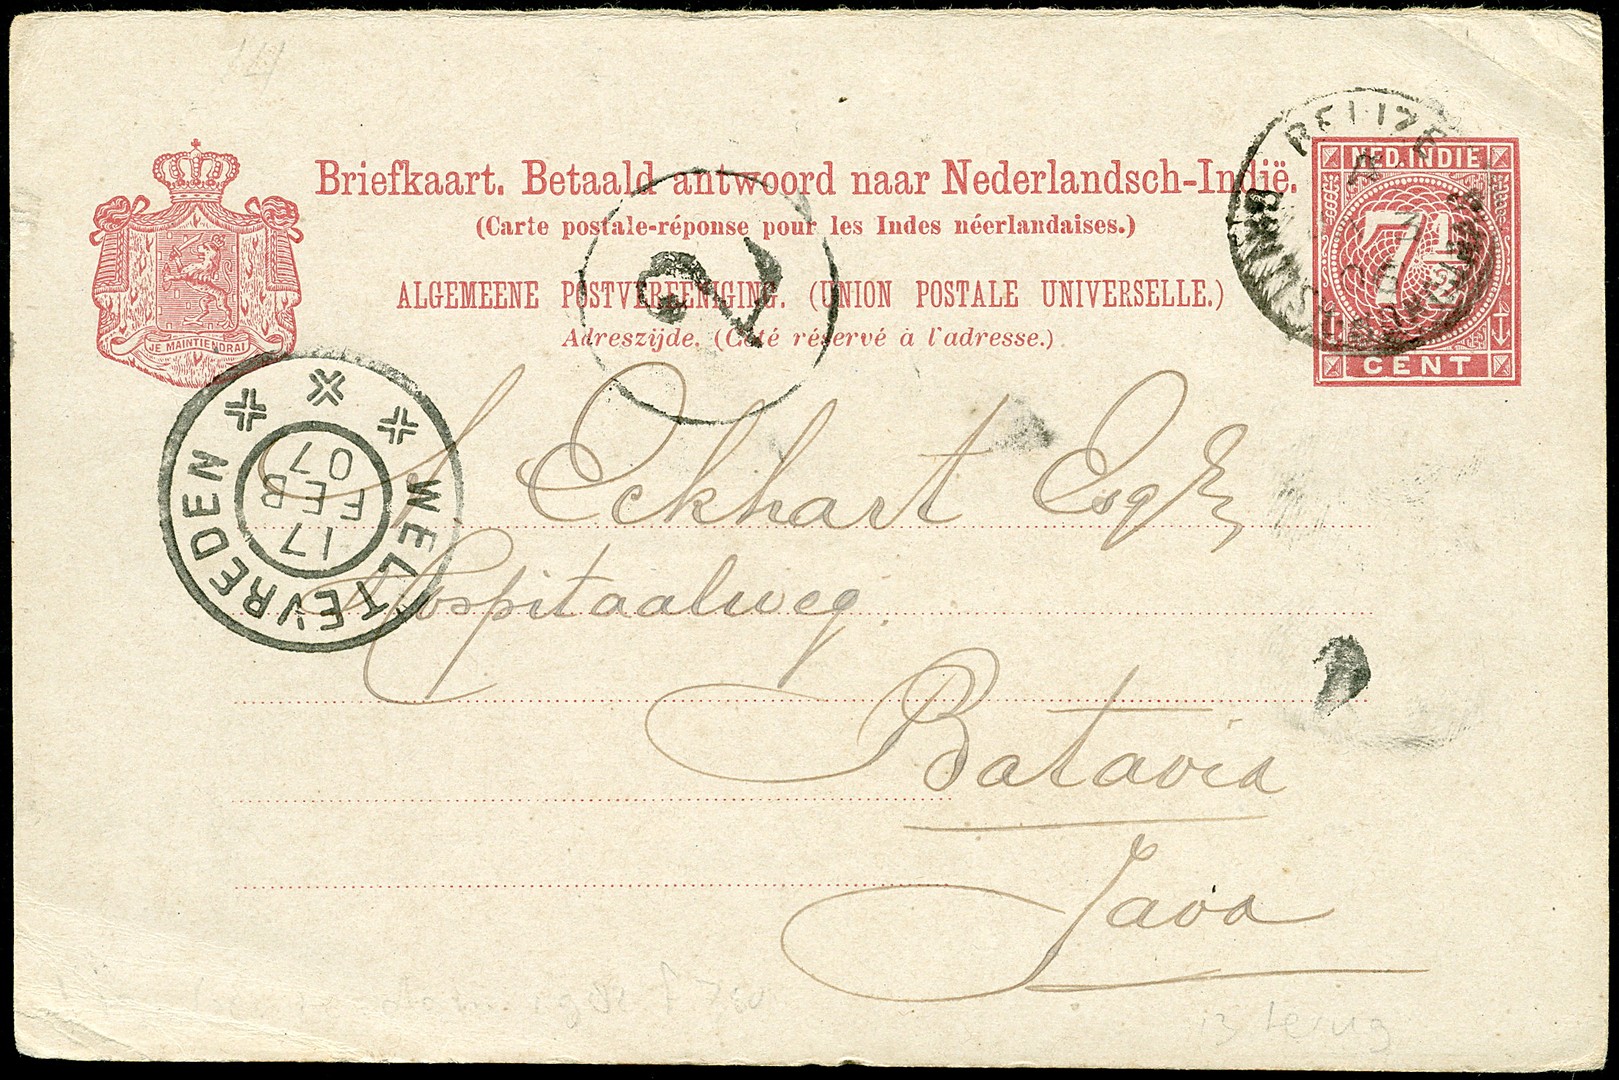 Briefkaart. Betaald antwoord naar Nederlandsch-Indië.
(Carte postale-réponse pour les Indes néerlandaises.)
ALGEMEENE POSTVEREENIGING. (UNION POSTALE UNIVERSELLE.)
Adreszijde. (Côté réservé à l'adresse.)
JE MAINTIENDRAI
NED. INDIE
7½
CENT
BELIZE
A
WELTEVREDEN
17
FEB
07
2
Eckhart Esqr
Hospitaalweg.
Batavia
Java
terug